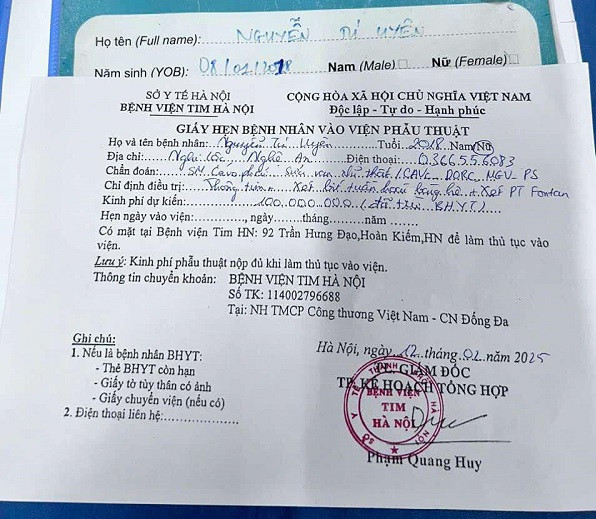 Họ tên (Full name): NGUYỄN TÚ UYÊN
Năm sinh (YOB): 08/01/2018 Nam (Male) Nữ (Female)
SỞ Y TẾ HÀ NỘI CỘNG HÒA XÃ HỘI CHỦ NGHĨA VIỆT NAM
BỆNH VIỆN TIM HÀ NỘI Độc lập - Tự do - Hạnh phúc
GIẤY HẸN BỆNH NHÂN VÀO VIỆN PHẪU THUẬT
Họ và tên bệnh nhân: Nguyễn Tú Uyên Tuổi: 2018 Nam/Nữ
Địa chỉ: Nghi Lộc, Nghệ An Điện thoại: 0366556083
Chẩn đoán: SM Cavopulm van nhĩ thất /CAVC DORC MGV PS
Chỉ định điều trị: Thông tim + xét bít tuần hoàn bàng hệ + xét PT Fontan
Kinh phí dự kiến: 100.000.000 (đã trừ BHYT)
Hẹn ngày vào viện:............, ngày........tháng.........năm .......
Có mặt tại Bệnh viện Tim HN: 92 Trần Hưng Đạo,Hoàn Kiếm,HN để làm thủ tục vào
viện.
Lưu ý: Kinh phí phẫu thuật nộp đủ khi làm thủ tục vào viện.
Thông tin chuyển khoản: BỆNH VIỆN TIM HÀ NỘI
Số TK: 114002796688
Tại: NH TMCP Công thương Việt Nam - CN Đống Đa
Ghi chú:
Hà Nội, ngày 12 tháng 02 năm 2025
1. Nếu là bệnh nhân BHYT:
GIÁM ĐỐC
- Thẻ BHYT còn hạn
TP. KẾ HOẠCH TỔNG HỢP
- Giấy tờ tùy thân có ảnh
BỆNH VIỆN
TIM
HÀ NỘI
- Giấy chuyển viện (nếu có)
2. Điện thoại liên hệ:..................
Phạm Quang Huy